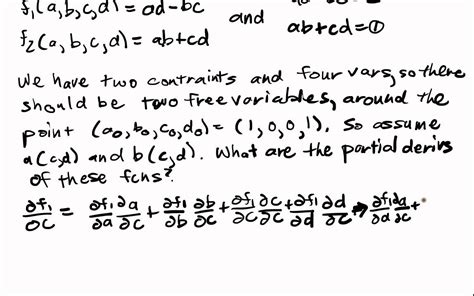 f₁(a,b,c,d) = ad-bc and
f₂(a,b,c,d) = ab+cd ab+cd=0
We have two contraints and four vars, so there
should be two free variables, around the
point (a₀,b₀,c₀,d₀) = (1,0,0,1). So assume
a(c,d) and b(c,d). What are the partial derivs
of these fcns?
∂f₁/∂c = ∂f₁/∂a ∂a/∂c + ∂f₁/∂b ∂b/∂c + ∂f₁/∂c ∂c/∂c + ∂f₁/∂d ∂d/∂c → ∂f₁/∂a ∂a/∂c +